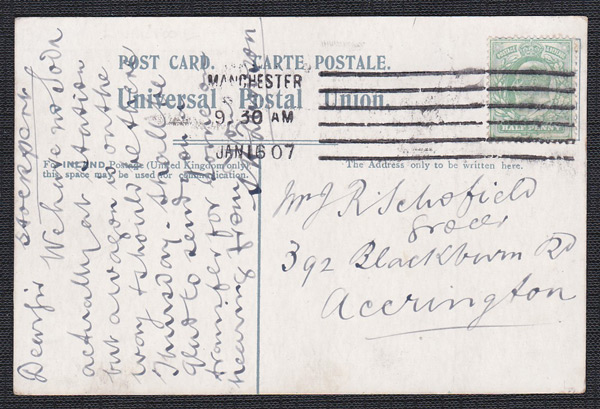 POST CARD. CARTE POSTALE.
Universal Postal Union.
MANCHESTER
9-30 AM
JAN 16 07
HALF PENNY
For INLAND Postage (United Kingdom only) this space may be used for communication.
The Address only to be written here.
Mr J R Schofield
grocer
392 Blackburn Rd
Accrington
Stockport
Dear Sir We have no soda
actually at station
but a wagon is on the
way & should be there
Thursday - shall be
glad to send you
transfer for
hearing from